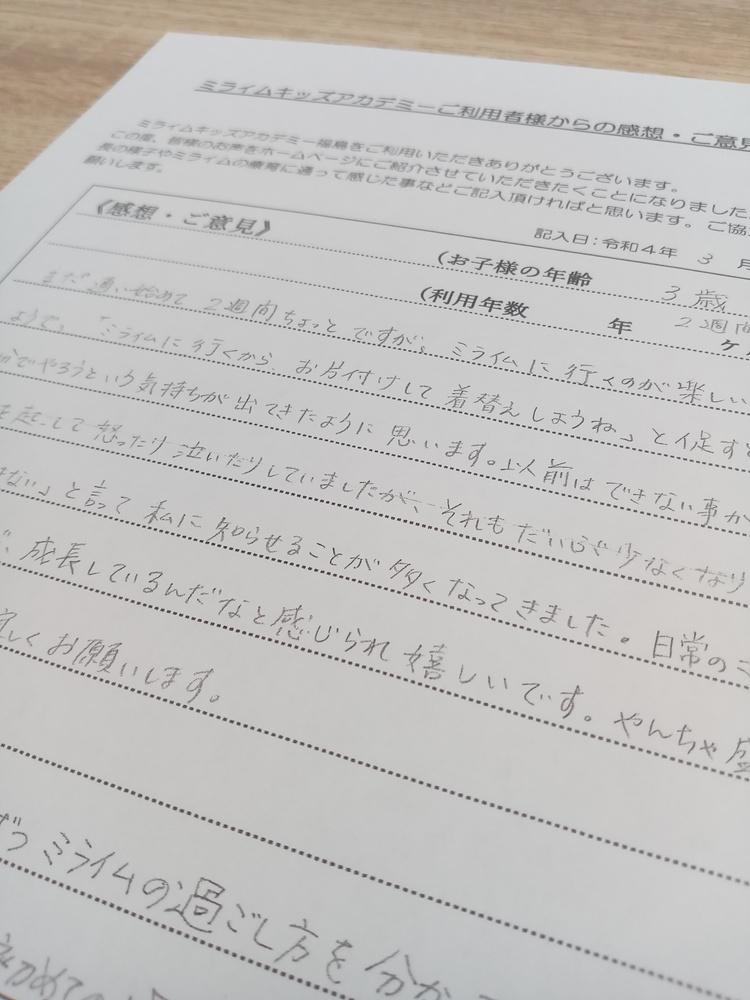 ミライムキッズアカデミーご利用者様からの感想・ご意見
ミライムキッズアカデミー福島をご利用いただきありがとうございます。
この度、皆様のお声をホームページにご紹介させていただきたくことになりました
長の様子やミライムの療育に通って感じた事などご記入頂ければと思います。ご協
願いします。
記入日：令和４年 3 月
《感想・ご意見》
(お子様の年齢 3歳
(利用年数 年 2週間 ケ
まだ通い始めて2週間ちょっとですが。ミライムに行くのが楽しい
ようで、「ミライムに行くから、お片付けして着替えしようね」と促すと
でやろうという気持ちが出てきたように思います。以前はできない事が
を起こして怒ったり泣いたりしていましたが、それもだいぶ少なくなり
ない」と言って私に知らせることが多くなってきました。日常のこ
成長しているんだなと感じられ嬉しいです。やんちゃ盛
しくお願いします。
ずつミライムの過ごし方を分か
初めての